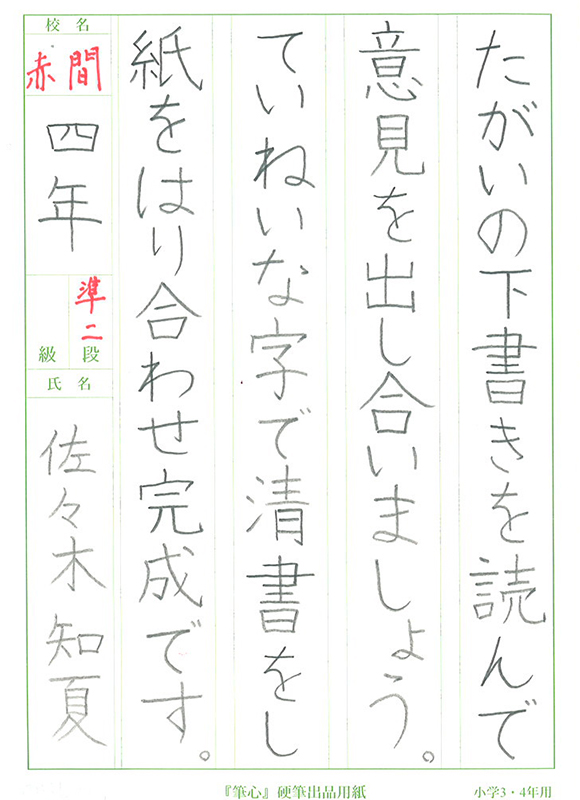 たがいの下書きを読んで
意見を出し合いましょう。
ていねいな字で清書をし
紙をはり合わせ完成です。
校名
赤間
四年
準二
段
級
氏名
佐々木知夏
『筆心』硬筆出品用紙
小学3・4年用